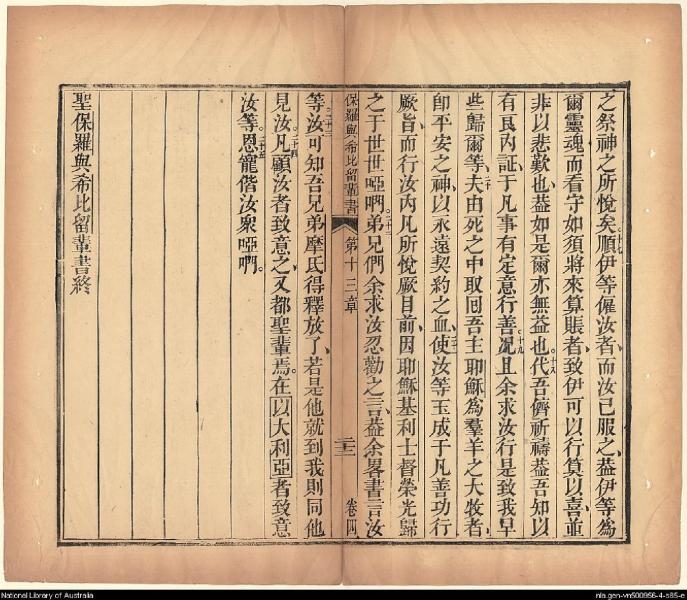 之祭神之所悅矣。十七順伊等僱汝者、而汝已服之、葢伊等為
爾靈魂而看守如須將來算賬者、致伊可以行莫以喜並
非以悲歎也、葢如是爾亦無益也。十八代吾儕祈禱葢吾知以
有良內証、于凡事有定意行善。十九況且余求汝行是致我早
些歸爾等。二十夫由死之中取囘吾主耶穌為羣羊之大牧者、
卽平安之神、以永遠契約之血、二十一使汝等玉成于凡善功行
厥旨、而行汝內凡所悅厥目前、因耶穌基利士督榮光歸
之于世世啞𠵽。二十二弟兄們余求汝忍勸之言、葢余畧書言汝
保羅與希比留輩書 第十三章 二十二 卷四
等。二十三汝可知吾兄弟摩氏得釋放了、若是他就到我則同他
見汝。二十四凡顧汝者致意之、又都聖輩焉。在以大利亞者致意
汝等。二十五恩寵偕汝眾啞𠵽。
聖保羅與希比留輩書終
National Library of Australia
nla.gen-vn500956-4-s85-e